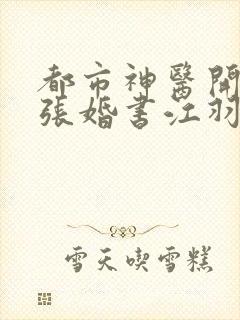 都市神醫開
張婚書江羽
雪天喫雪糕